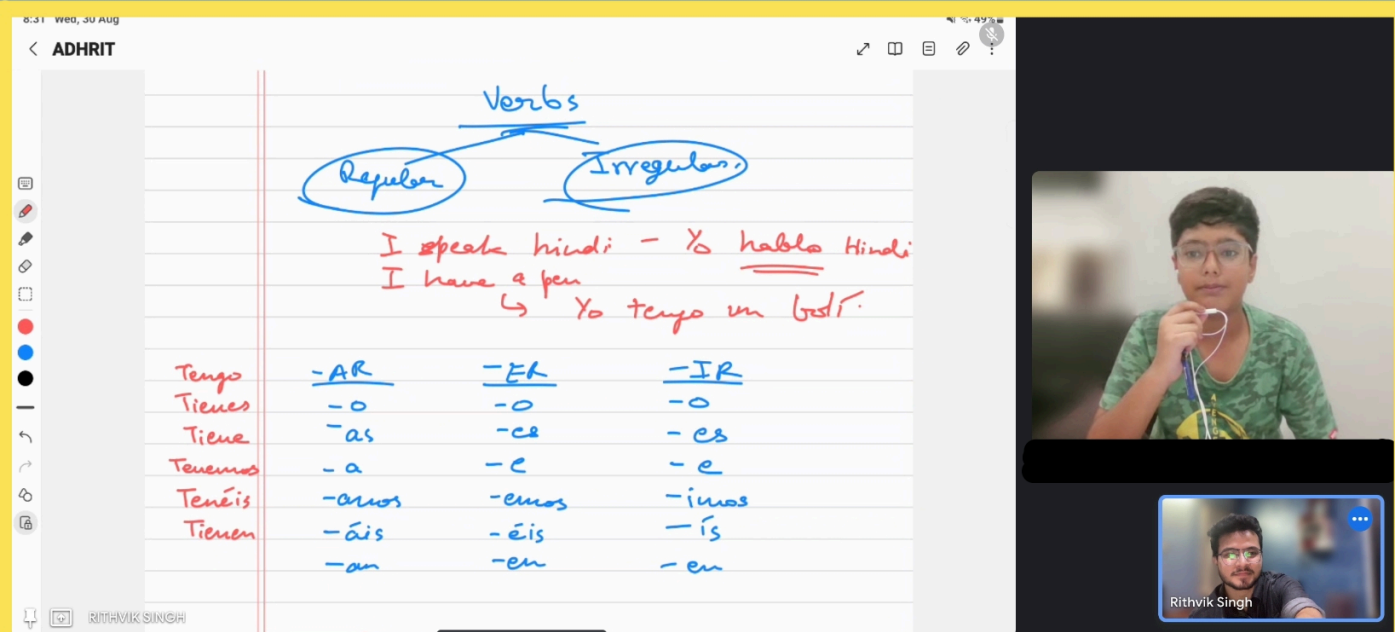 8:31 Wed, 30 Aug 49%
ADHRIT
Verbs
Regular Irregular.
I speak hindi - Yo hablo Hindi
I have a pen
↳ Yo tengo un bolí.
Tengo -AR -ER -IR
Tienes -o -o -o
Tiene -as -es -es
Tenemos -a -e -e
Tenéis -amos -emos -imos
Tienen -áis -éis -ís
-an -en -en
RITHVIK SINGH
Rithvik Singh